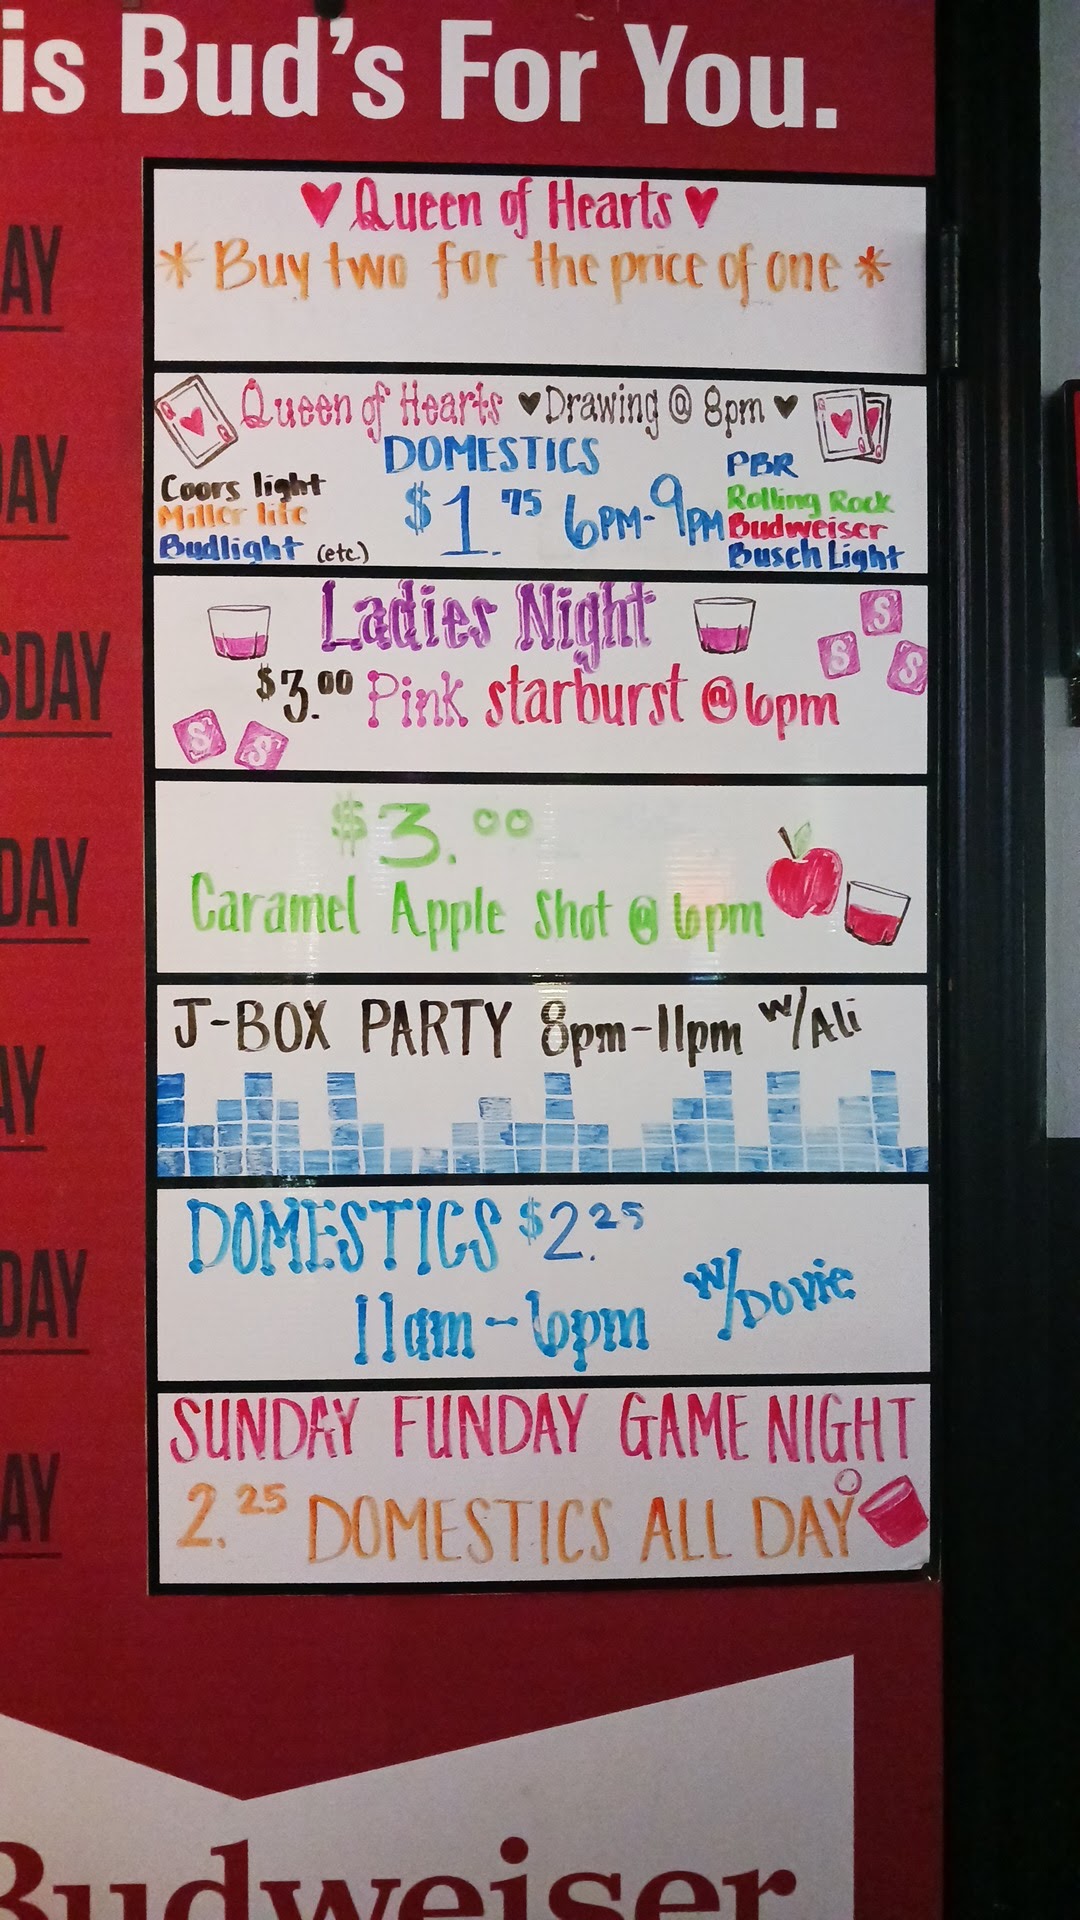 is Bud's For You.
AY
♥ Queen of Hearts ♥
* Buy two for the price of one *
DAY
Queen of Hearts ♥ Drawing @ 8pm ♥
DOMESTICS
$1.75 6PM-9PM
Coors light
Miller lite
Budlight (etc.)
PBR
Rolling Rock
Budweiser
Busch Light
SDAY
Ladies Night
$3.00 Pink starburst @ 6pm
S
S
S
S
S
DAY
$3.00
Caramel Apple Shot @ 6pm
AY
J-BOX PARTY 8pm-11pm w/Ali
DAY
DOMESTICS $2.25
11am-6pm w/Dovie
AY
SUNDAY FUNDAY GAME NIGHT
2.25 DOMESTICS ALL DAY
Budweiser